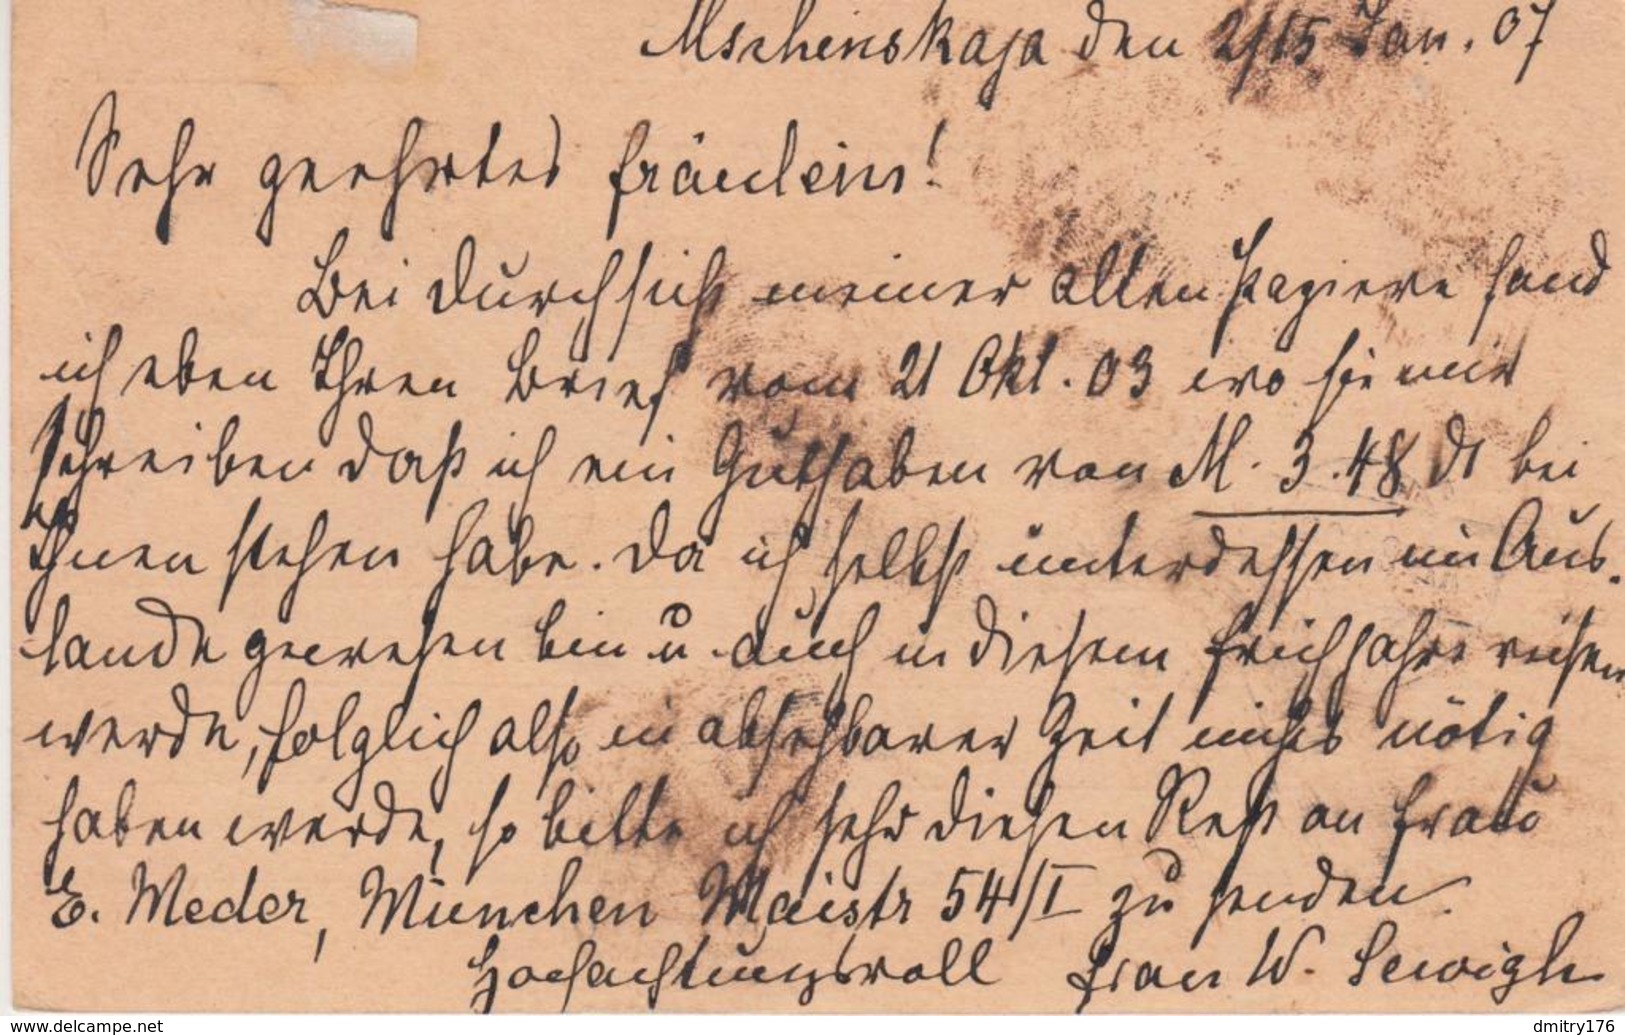 Mschinskaja den 2/15 Jan. 07
Sehr geehrtes Fräulein!
Bei Durchsicht meiner alten Papiere fand
ich eben Ihren Brief vom 21 Okt. 03 wo sie mir
schreiben daß ich ein Guthaben von M. 3.48 bei
Ihnen stehen habe. Da ich selbst unterdessen im Aus-
lande gewesen bin u. auch in diesem Frühjahre reisen
werde, folglich also in absehbarer Zeit nichts nötig
haben werde, so bitte ich sehr diesen Rest an Frau
E. Meder, München Maistr 54/I zu senden.
Hochachtungsvoll Frau W.
www.delcampe.net
dmitry176